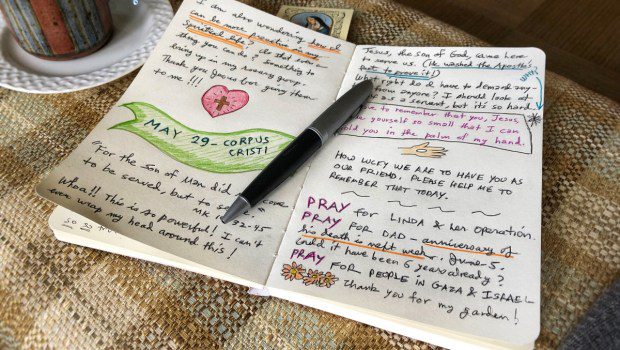 I am also wondering how I
can be more proactive in my
Spiritual life? Is there
thing you can do? something to
bring up in my rosary group.
Thank you Jesus for giving them
to me!!!
MAY 29 - CORPUS
CRISTI
For the Son of Man did come
to be served, but to se
MK 22-45
Whoa!! This is so powerful! I can't
even wrap my head around this!
Jesus, the son of God, came here
to serve us. (He washed the Apostle's
feet to prove it!)
WOW!
What right do I have to demand any-
from anyone? I should look at
as a servant, but it's so hard.
to remember that you, Jesus
yourself so small that I can
hold you in the palm of my hand.
HOW LUCKY WE ARE TO HAVE YOU AS
OUR FRIEND. PLEASE HELP ME TO
REMEMBER THAT TODAY.
PRAY for LINDA & her operation.
PRAY FOR DAD - anniversary of
his death is next week. June 5.
Could it have been 6 years already?
PRAY FOR PEOPLE IN GAZA & ISRAEL
Thank you for my garden!